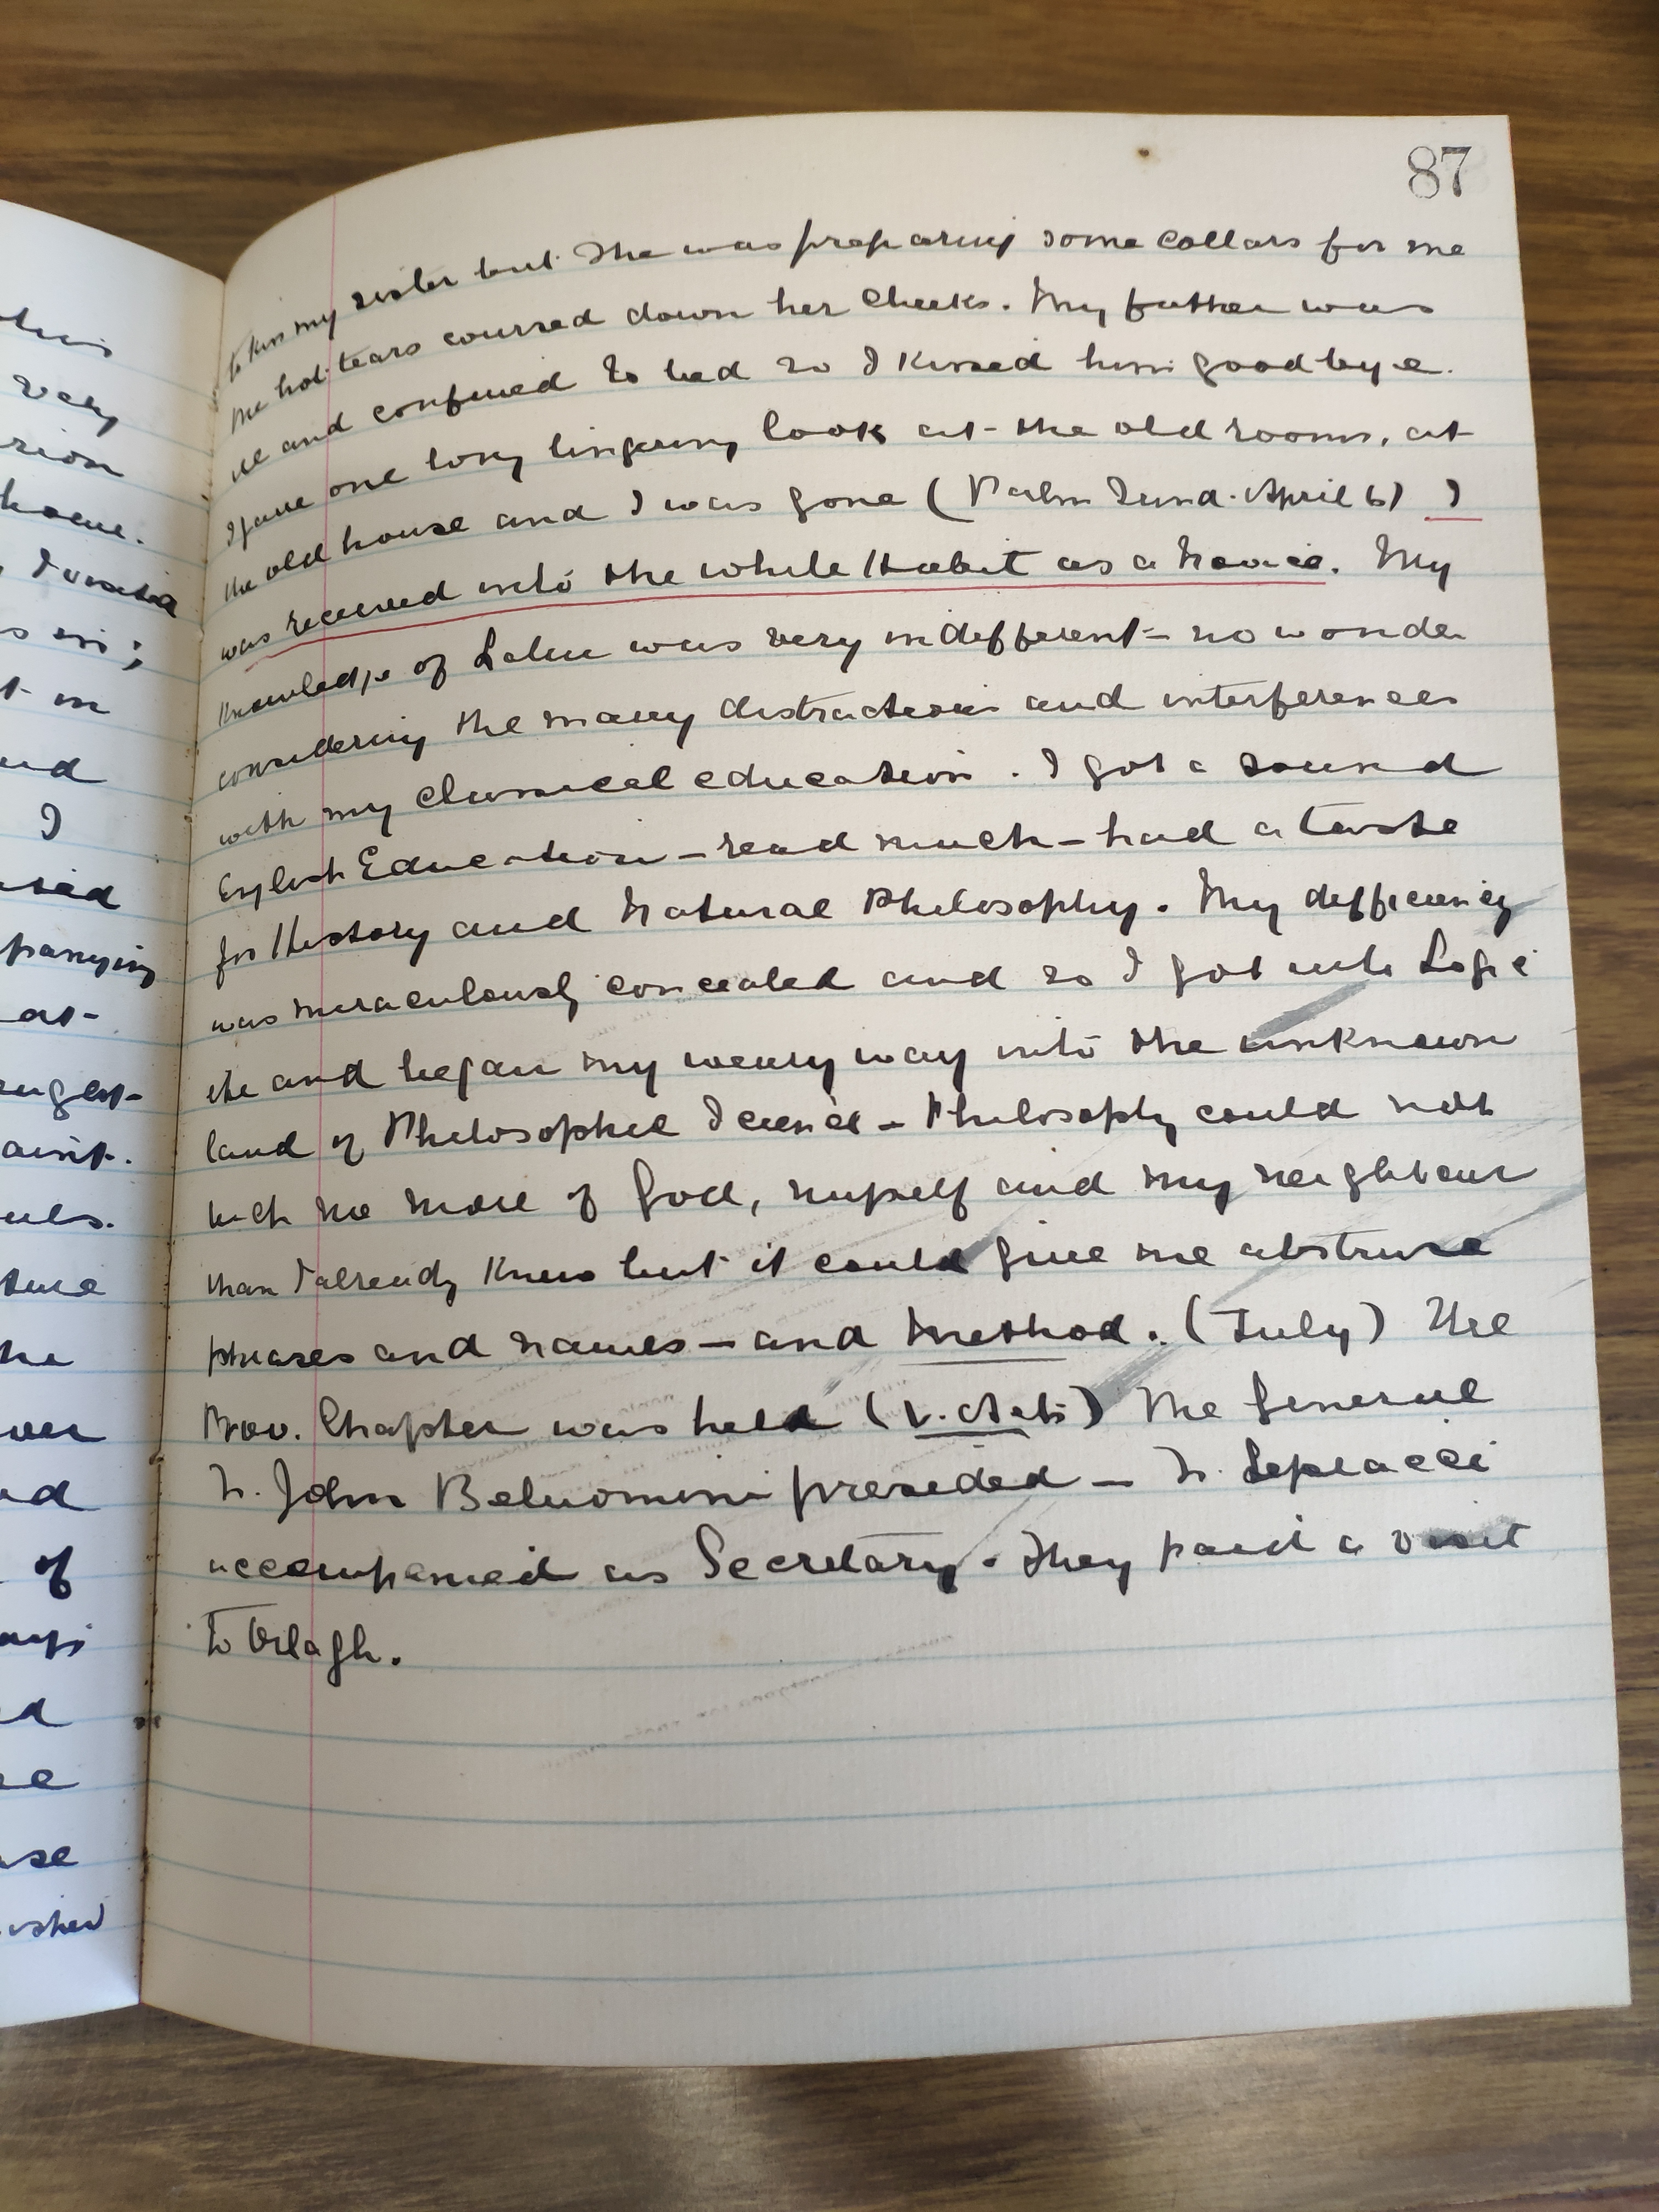 87
to kiss my sister but she was preparing some collars for me
the hot tears coursed down her cheeks. My father was
ill and confined to bed so I kissed him goodbye.
I gave one long lingering look at the old rooms, at
the old house and I was gone (Palm Sund. April 6) I
was received into the white Habit as a Novice. My
Knowledge of Latin was very indifferent – no wonder
considering the many distractions and interferences
with my classical education. I got a sound
English Education – read much – had a taste
for History and Natural Philosophy. My defficiency
was miraculously concealed and so I got into Logic
etc and began my weary way into the unknown
land of Philosophic Science – Philosophy could not
teach me more of God, myself and my neighbour
than I already Knew but it could give me abstruse
phrases and names – and method. (July) The
Prov. Chapter was held (v. Acts) The General
Fr. John Beluomini presided – Fr. Lepiacci
accompanied as Secretary. They paid a visit
to Orlagh.
this
very
home.
t in
I
panying
at-
he
of